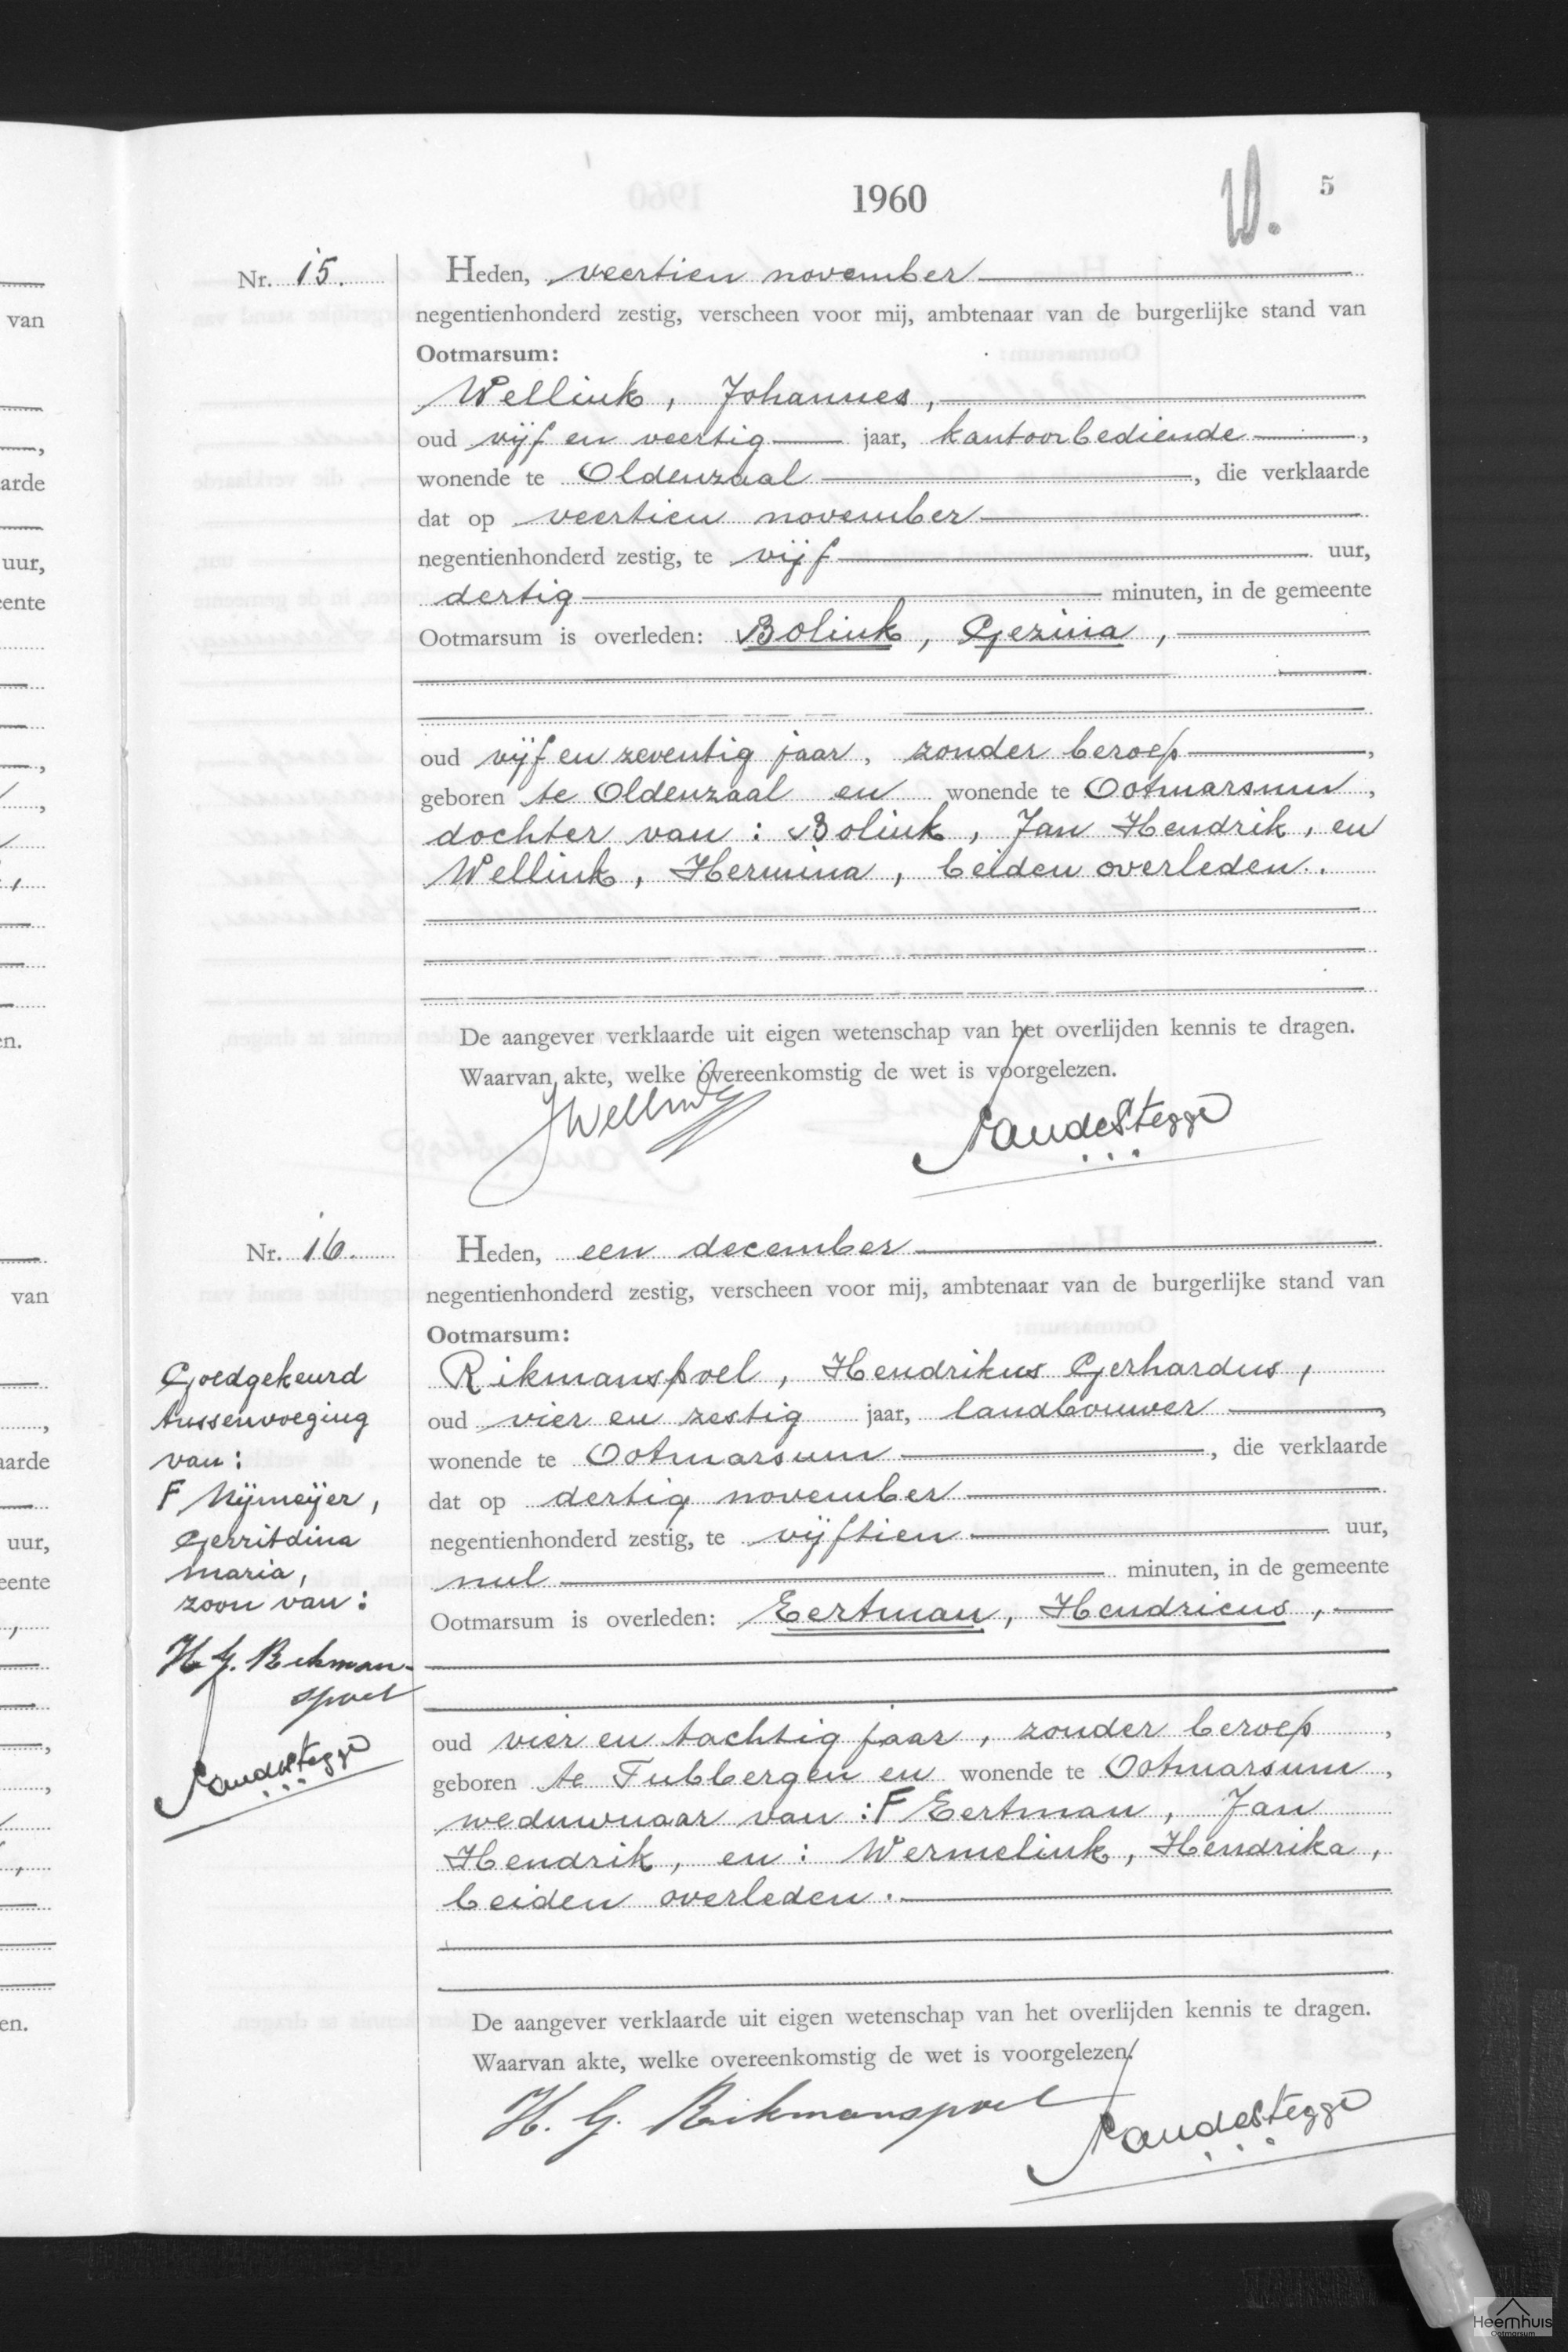 1960
10.
5
Nr. 15.
Heden, veertien november
negentienhonderd zestig, verscheen voor mij, ambtenaar van de burgerlijke stand van
Ootmarsum:
Wellink, Johannes,
oud vijf en veertig jaar, kantoorbediende,
wonende te Oldenzaal, die verklaarde
dat op veertien november
negentienhonderd zestig, te vijf uur,
dertig minuten, in de gemeente
Ootmarsum is overleden: Bolink, Gezina,
oud vijf en zeventig jaar, zonder beroep,
geboren te Oldenzaal en wonende te Ootmarsum,
dochter van: Bolink, Jan Hendrik, en
Wellink, Hermina, beiden overleden.
De aangever verklaarde uit eigen wetenschap van het overlijden kennis te dragen.
Waarvan akte, welke overeenkomstig de wet is voorgelezen.
JWellink
Nr. 16.
Heden, een december
negentienhonderd zestig, verscheen voor mij, ambtenaar van de burgerlijke stand van
Ootmarsum:
Rikmanspoel, Hendrikus Gerhardus,
oud vier en zestig jaar, landbouwer,
wonende te Ootmarsum, die verklaarde
dat op dertig november
negentienhonderd zestig, te vijftien uur,
nul minuten, in de gemeente
Ootmarsum is overleden: Eertman, Hendricus,
oud vier en tachtig jaar, zonder beroep,
geboren te Tubbergen en wonende te Ootmarsum,
weduwnaar van: F Eertman, Jan
Hendrik, en: Wermelink, Hendrika,
beiden overleden.
De aangever verklaarde uit eigen wetenschap van het overlijden kennis te dragen.
Waarvan akte, welke overeenkomstig de wet is voorgelezen.
H. G. Rikmanspoel
Goedgekeurd
tussenvoeging
van:
F Nijmeijer,
Gerritdina
maria,
zoon van:
H G. Rikman-
spoel
van
arde
uur,
eente
en.
van
aarde
uur,
eente
en.
Heemhuis
Ootmarsum